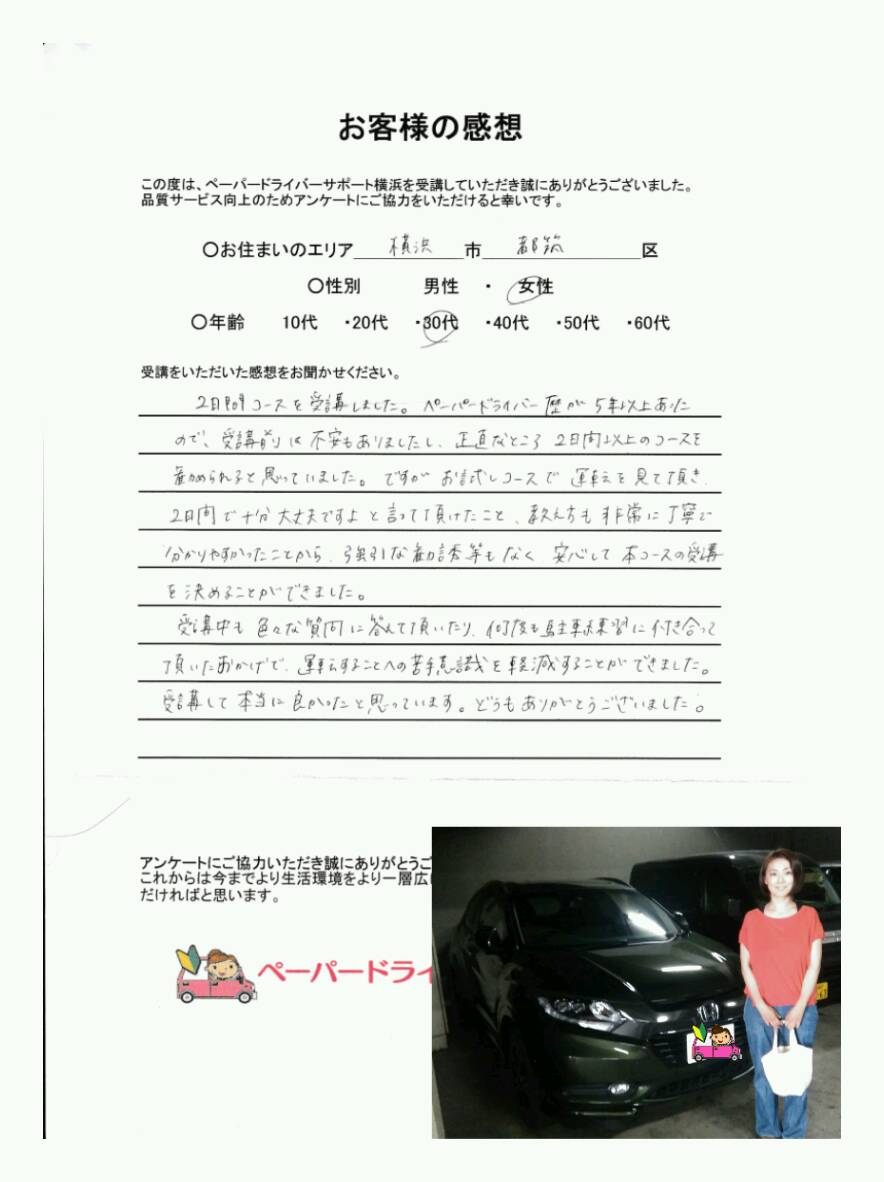 お客様の感想
この度は、ペーパードライバーサポート横浜を受講していただき誠にありがとうございました。
品質サービス向上のためアンケートにご協力をいただけると幸いです。
〇お住まいのエリア 横浜 市 都筑 区
〇性別 男性 ・ 女性
〇年齢 10代 ・20代 ・30代 ・40代 ・50代 ・60代
受講をいただいた感想をお聞かせください。
2日間コースを受講しました。ペーパードライバー歴が5年以上あった
ので、受講前は不安もありましたし、正直なところ2日間以上のコースを
勧められると思っていました。ですがお試しコースで運転を見て頂き、
2日間で十分大丈夫ですよと言って頂けたこと、教え方も非常に丁寧で
分かりやすかったことから、強引な勧誘等もなく安心して本コースの受講
を決めることができました。
受講中も色々な質問に答えて頂いたり、何度も駐車練習に付き合って
頂いたおかげで、運転することへの苦手意識を軽減することができました。
受講して本当に良かったと思っています。どうもありがとうございました。
アンケートにご協力いただき誠にありがとうご
これからは今までより生活環境をより一層広
だければと思います。
ペーパードライ